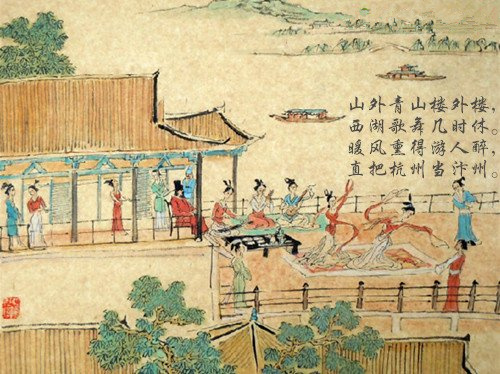 山外青山楼外楼，
西湖歌舞几时休
暖风熏得游人醉，
直把杭州当汴州。